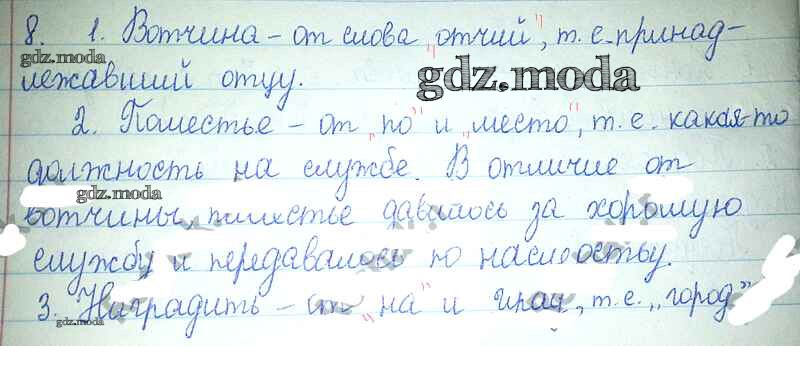 8. 1. Вотчина - от слова "отчий", т. е. принад-
лежавший отцу.
gdz.moda
2. Поместье - от "по" и "место", т. е. какая-то
должность на службе. В отличие от
gdz.moda
вотчины, поместье давалось за хорошую
службу и передавалось по наследству.
3. Наградить - от "на" и град, т. е. "город"
gdz.moda